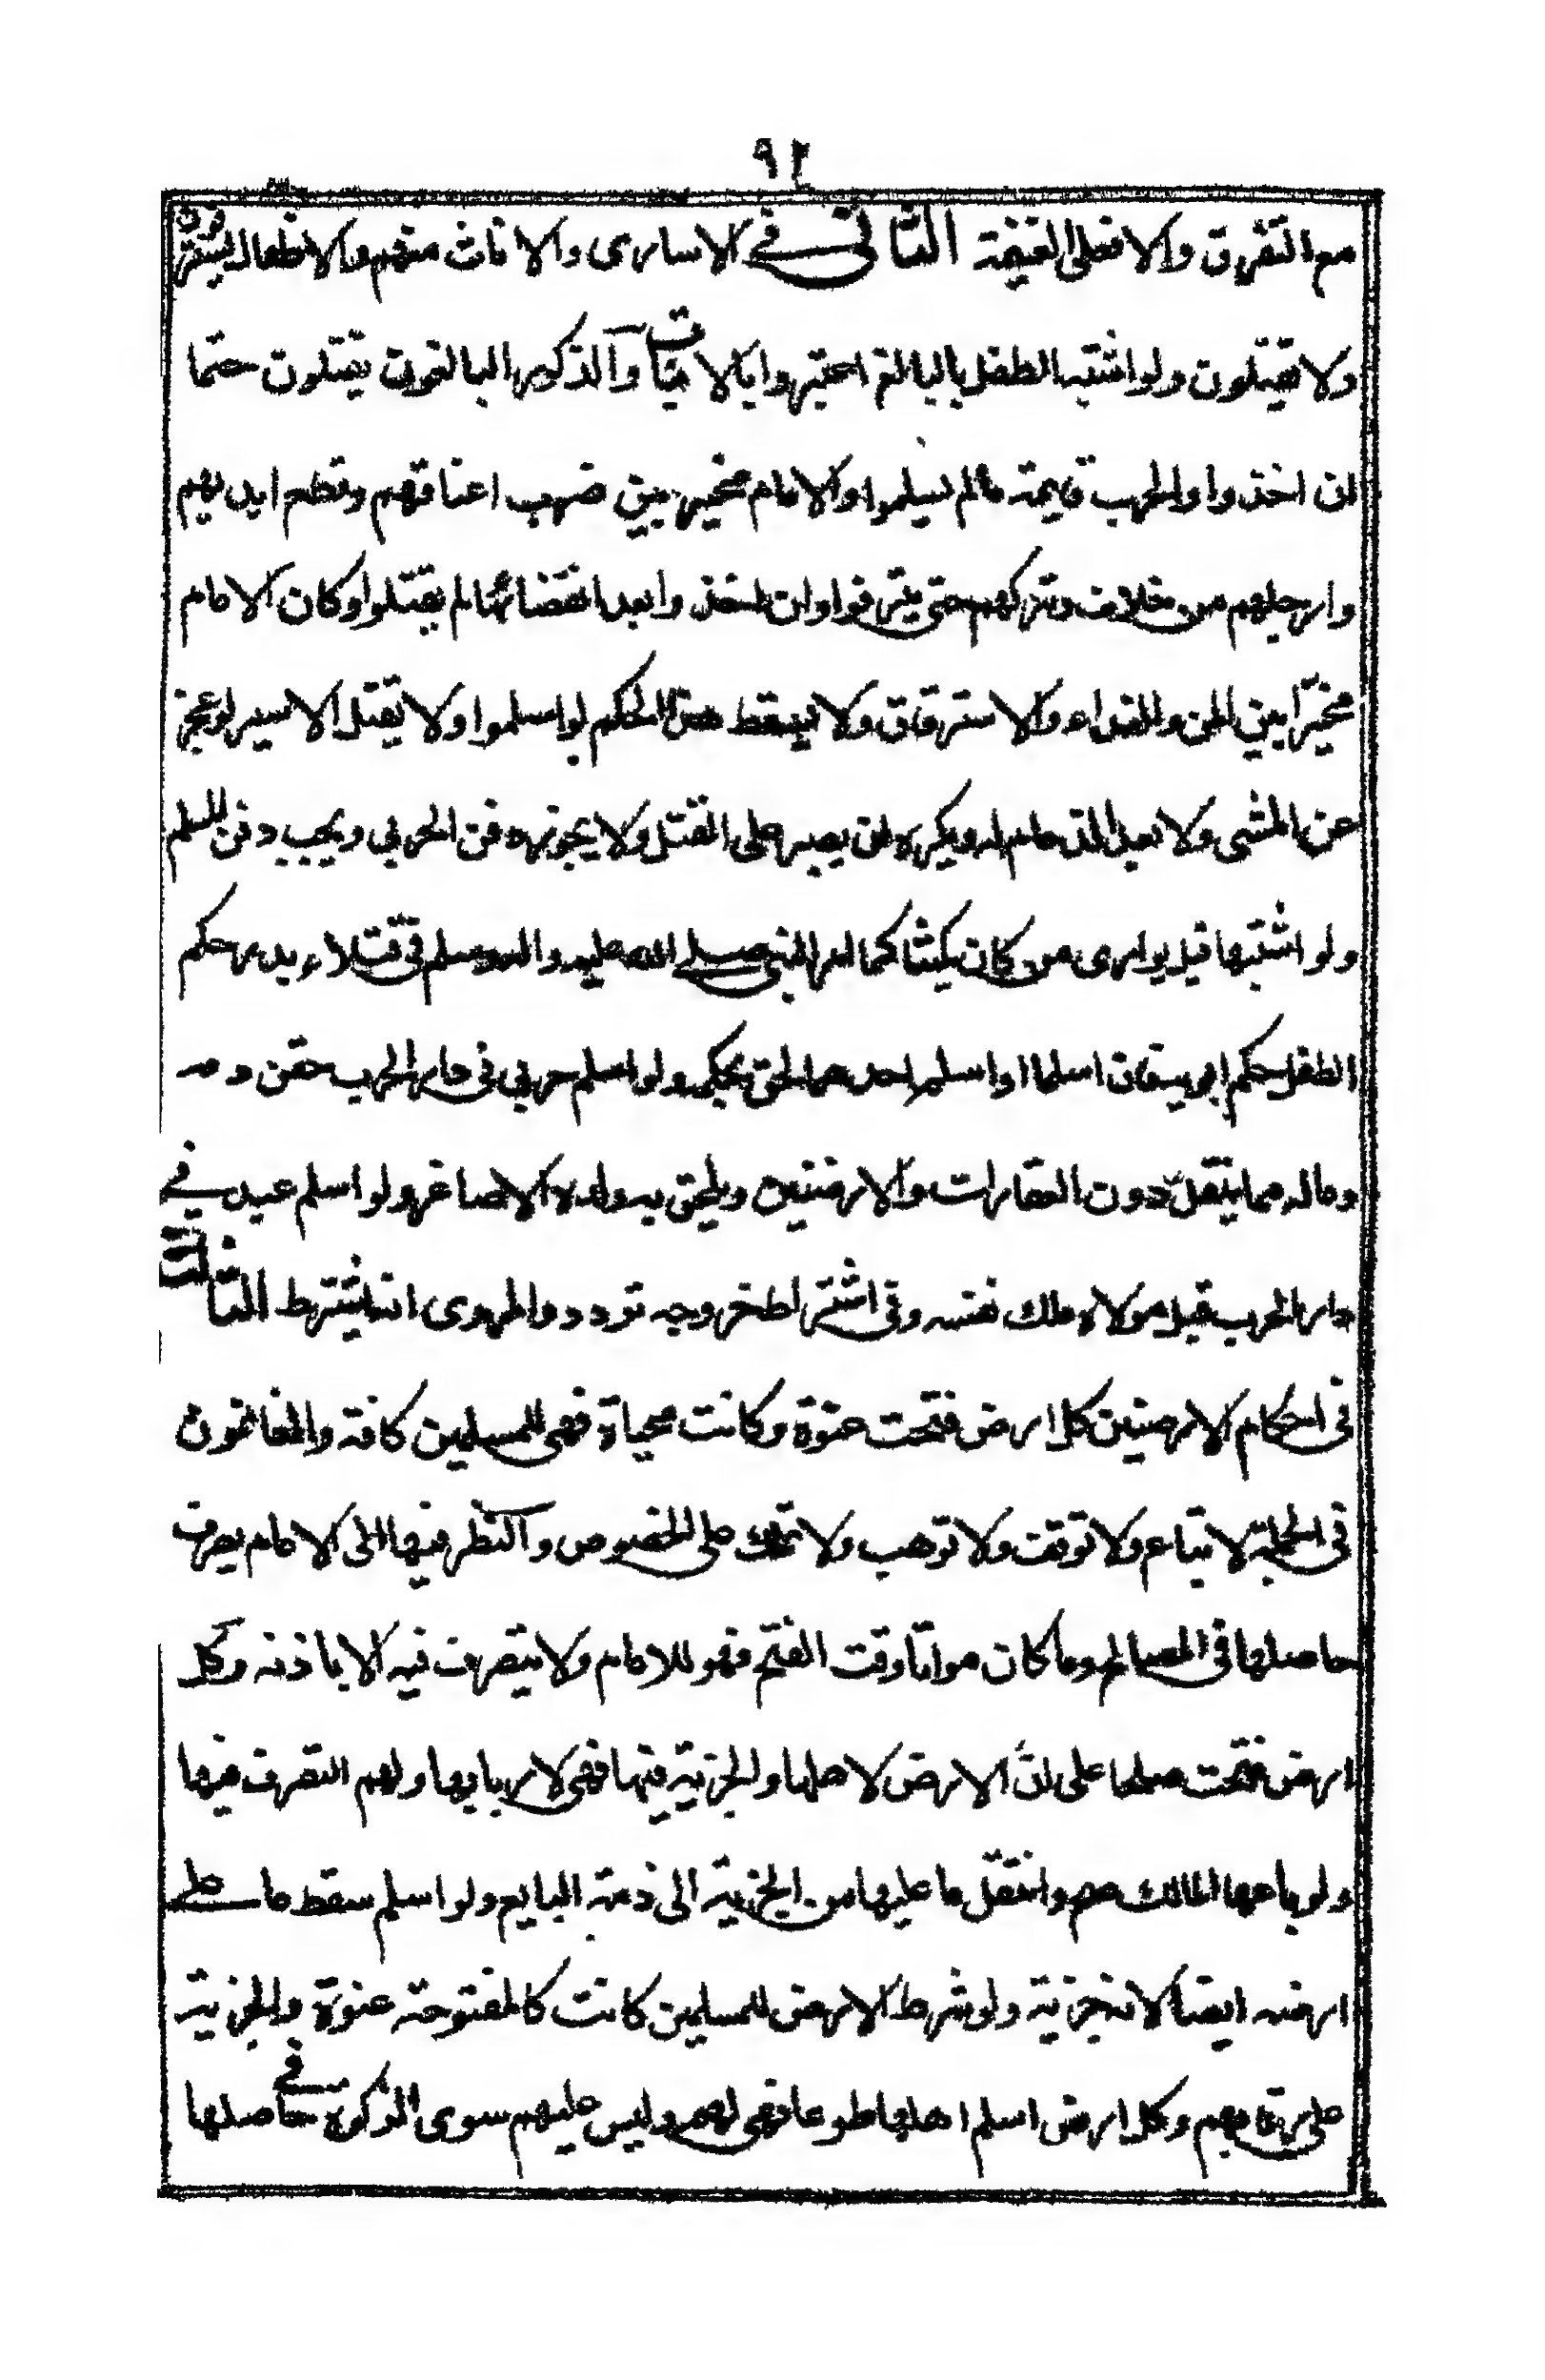 ٩٢
مع التفرق والا فعلى الغنيمة الثانى فى الاسارى والاناث منهم والاطفال يسترقون
ولا يقتلون ولو اشتبه الطفل بالبالغ اعتبر وا بالانبات والذكور البالغون يقتلون حتما
ان اخذوا والحرب قايمة مالم يسلموا والامام مخير بين ضرب اعناقهم وقطع ايديهم
وارجلهم من خلاف وتركهم حتى ينزفوا وان اخذوا بعد انقضائها لم يقتلوا وكان الامام
مخيرّا بين المن والفداء والاسترقاق ولا يسقط هذا الحكم لو اسلموا ولا يقتل الاسير لو عجز
عن المشى ولا بعد الذمام له ويكره ان يصبر على القتل ولا يجوز دفن الحربي ويجب دفن المسلم
ولو اشتبها قيل يوارى من كان كميشا كما امر النبى صلى الله عليه واله وسلم فى قتلاء بدر حكم
الطفل حكم ابويه فان اسلما او اسلم احدهما لحق بحكمه ولو اسلم حربي فى دار الحرب حقن دمه
وماله مما ينقل دون العقارات والارضين ويلحق به ولده الاصاغر ولو اسلم عبد فى
دار الحرب قبل مولاه ملك نفسه وفى اشتراط خروجه تردد والمروى انه يشترط الثالث
فى احكام الارضين كل ارض فتحت عنوة وكانت محياة فهى للمسلمين كافة والغانمون
فى الجملة لا تباع ولا توقف ولا توهب ولا تملك على الخصوص والنظر فيها الى الامام يصرف
حاصلها فى المصالح وما كان مواتا وقت الفتح فهو للامام ولا يتصرف فيه الا باذنه وكل
ارض فتحت صلحا على انّ الارض لاهلها والجزية فيها فهى لاربابها ولهم التصرف فيها
ولو باعها المالك صح وانتقل ما عليها من الجزية الى ذمة البايع ولو اسلم سقط ما على
ارضه ايضا لانه جزية ولو شرط الارض للمسلمين كانت كالمفتوحة عنوة والجزية
على رقابهم وكل ارض اسلم اهلها طوعا فهى لهم وليس عليهم سوى الزكوة فى حاصلها